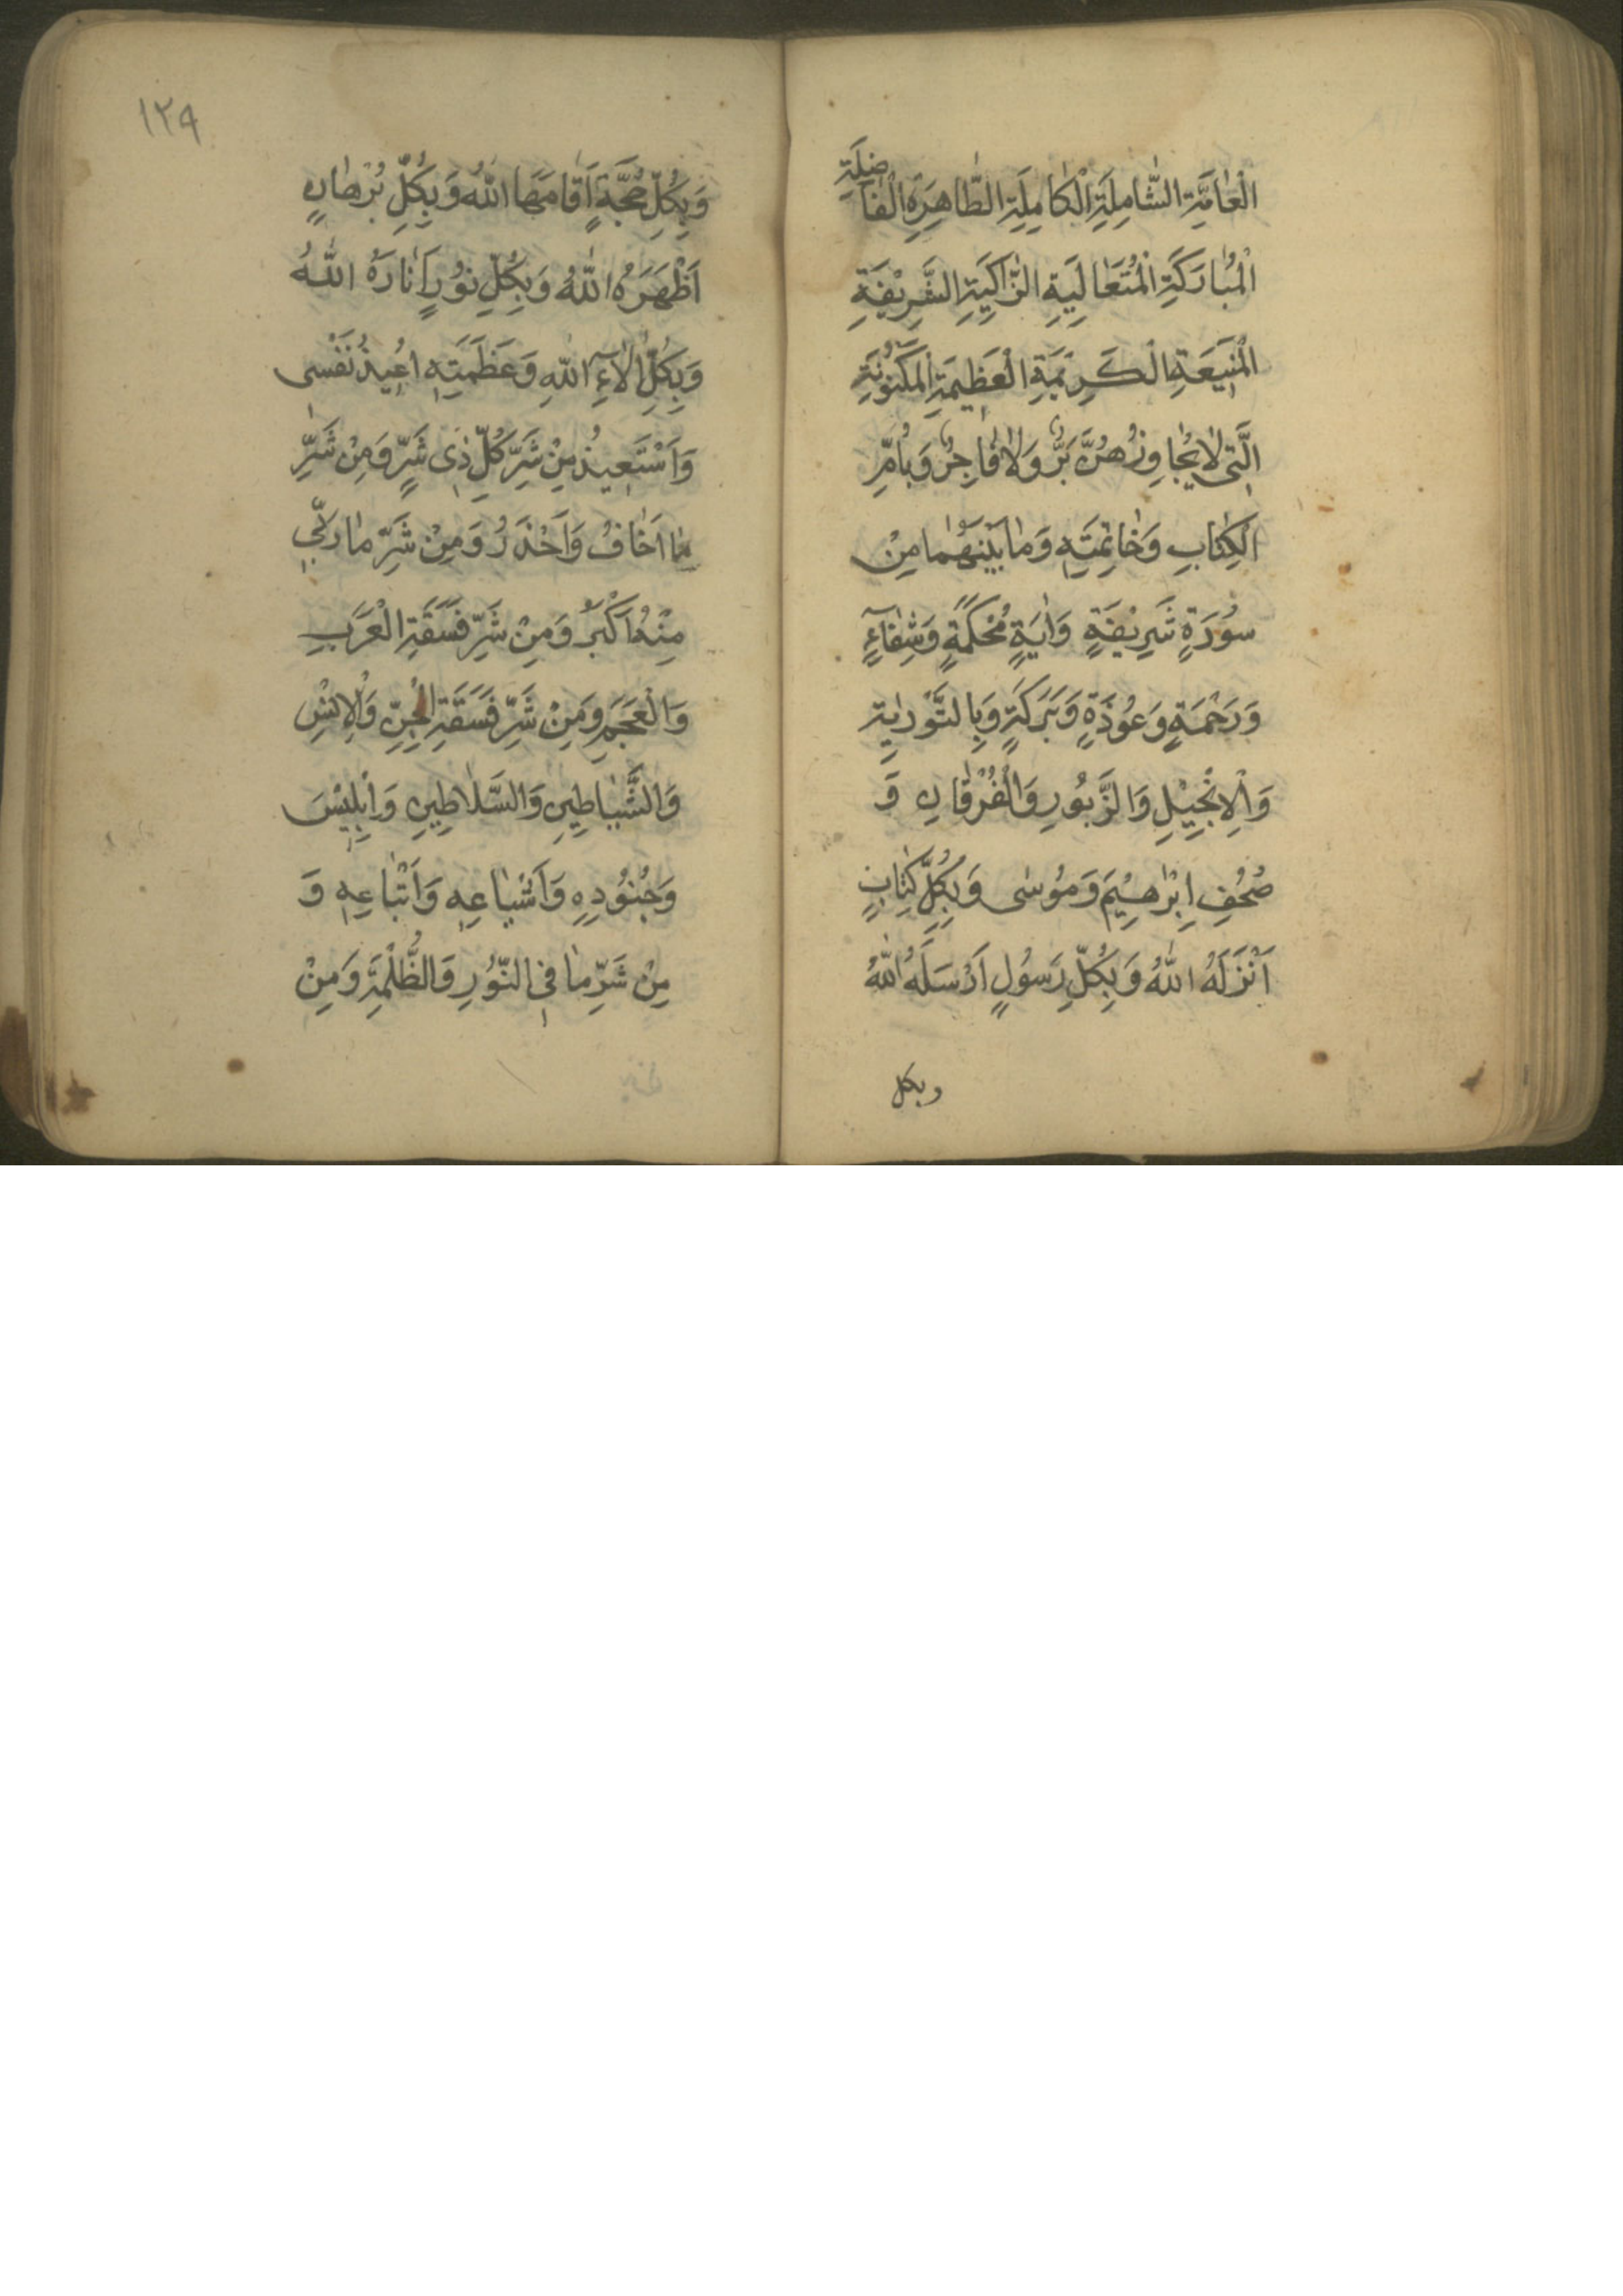 الْعَامَّةِ الشَّامِلَةِ الْكَامِلَةِ الطَّاهِرَةِ الْفَاضِلَةِ
الْمُبَارَكَةِ الْمُتَعَالِيَةِ الزَّاكِيَةِ الشَّرِيْفَةِ
الْمَنِيعَةِ الْكَرِيمَةِ الْعَظِيمَةِ الْمَكْنُونَةِ
الَّتِي لَا يُجَاوِزُهُنَّ بَرٌّ وَلَا فَاجِرٌ وَبِاُمِّ
الْكِتَابِ وَخَاتِمَتِهِ وَمَا بَيْنَهُمَا مِنْ
سُوْرَةٍ شَرِيْفَةٍ وَاٰيَةٍ مُحْكَمَةٍ وَشِفَآءٍ
وَرَحْمَةٍ وَعُوْذَةٍ وَبَرَكَةٍ وَبِالتَّوْرٰيةِ
وَالْاِنْجِيْلِ وَالزَّبُوْرِ وَالْفُرْقَانِ وَ
صُحُفِ اِبْرٰهِيْمَ وَمُوْسٰى وَبِكُلِّ كِتَابٍ
اَنْزَلَهُ اللّٰهُ وَبِكُلِّ رَسُوْلٍ اَرْسَلَهُ اللّٰهُ
وبكل
١٢٩
وَبِكُلِّ حُجَّةٍ اَقَامَهَا اللّٰهُ وَبِكُلِّ بُرْهَانٍ
اَظْهَرَهُ اللّٰهُ وَبِكُلِّ نُوْرٍ اَنَارَهُ اللّٰهُ
وَبِكُلِّ اٰلَآءِ اللّٰهِ وَعَظَمَتِهِ اُعِيذُ نَفْسِى
وَاَسْتَعِيذُ مِنْ شَرِّ كُلِّ ذِى شَرٍّ وَمِنْ شَرِّ
مَا اَخَافُ وَاَحْذَرُ وَمِنْ شَرِّ مَا رَبِّي
مِنْهُ اَكْبَرُ وَمِنْ شَرِّ فَسَقَةِ الْعَرَبِ
وَالْعَجَمِ وَمِنْ شَرِّ فَسَقَةِ الْجِنِّ وَالْاِنْسِ
وَالشَّيَاطِيْنِ وَالسَّلَاطِيْنِ وَاِبْلِيْسَ
وَجُنُوْدِهِ وَاَشْيَاعِهِ وَاَتْبَاعِهِ وَ
مِنْ شَرِّ مَا فِي النُّوْرِ وَالظُّلْمَةِ وَمِنْ